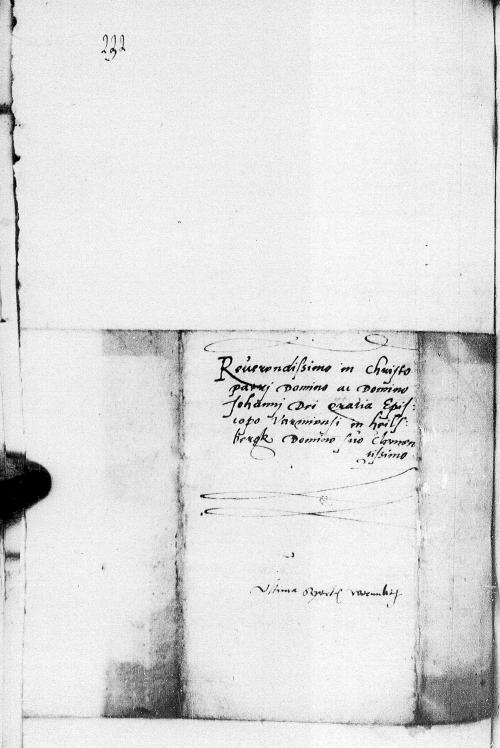 292
Reverendissimo in Christo
patri Domino ac Domino
Johanni Dei gratia Epis:
copo Varmiensi in heils:
bergk Domino suo Clemen
tissimo
Ultima